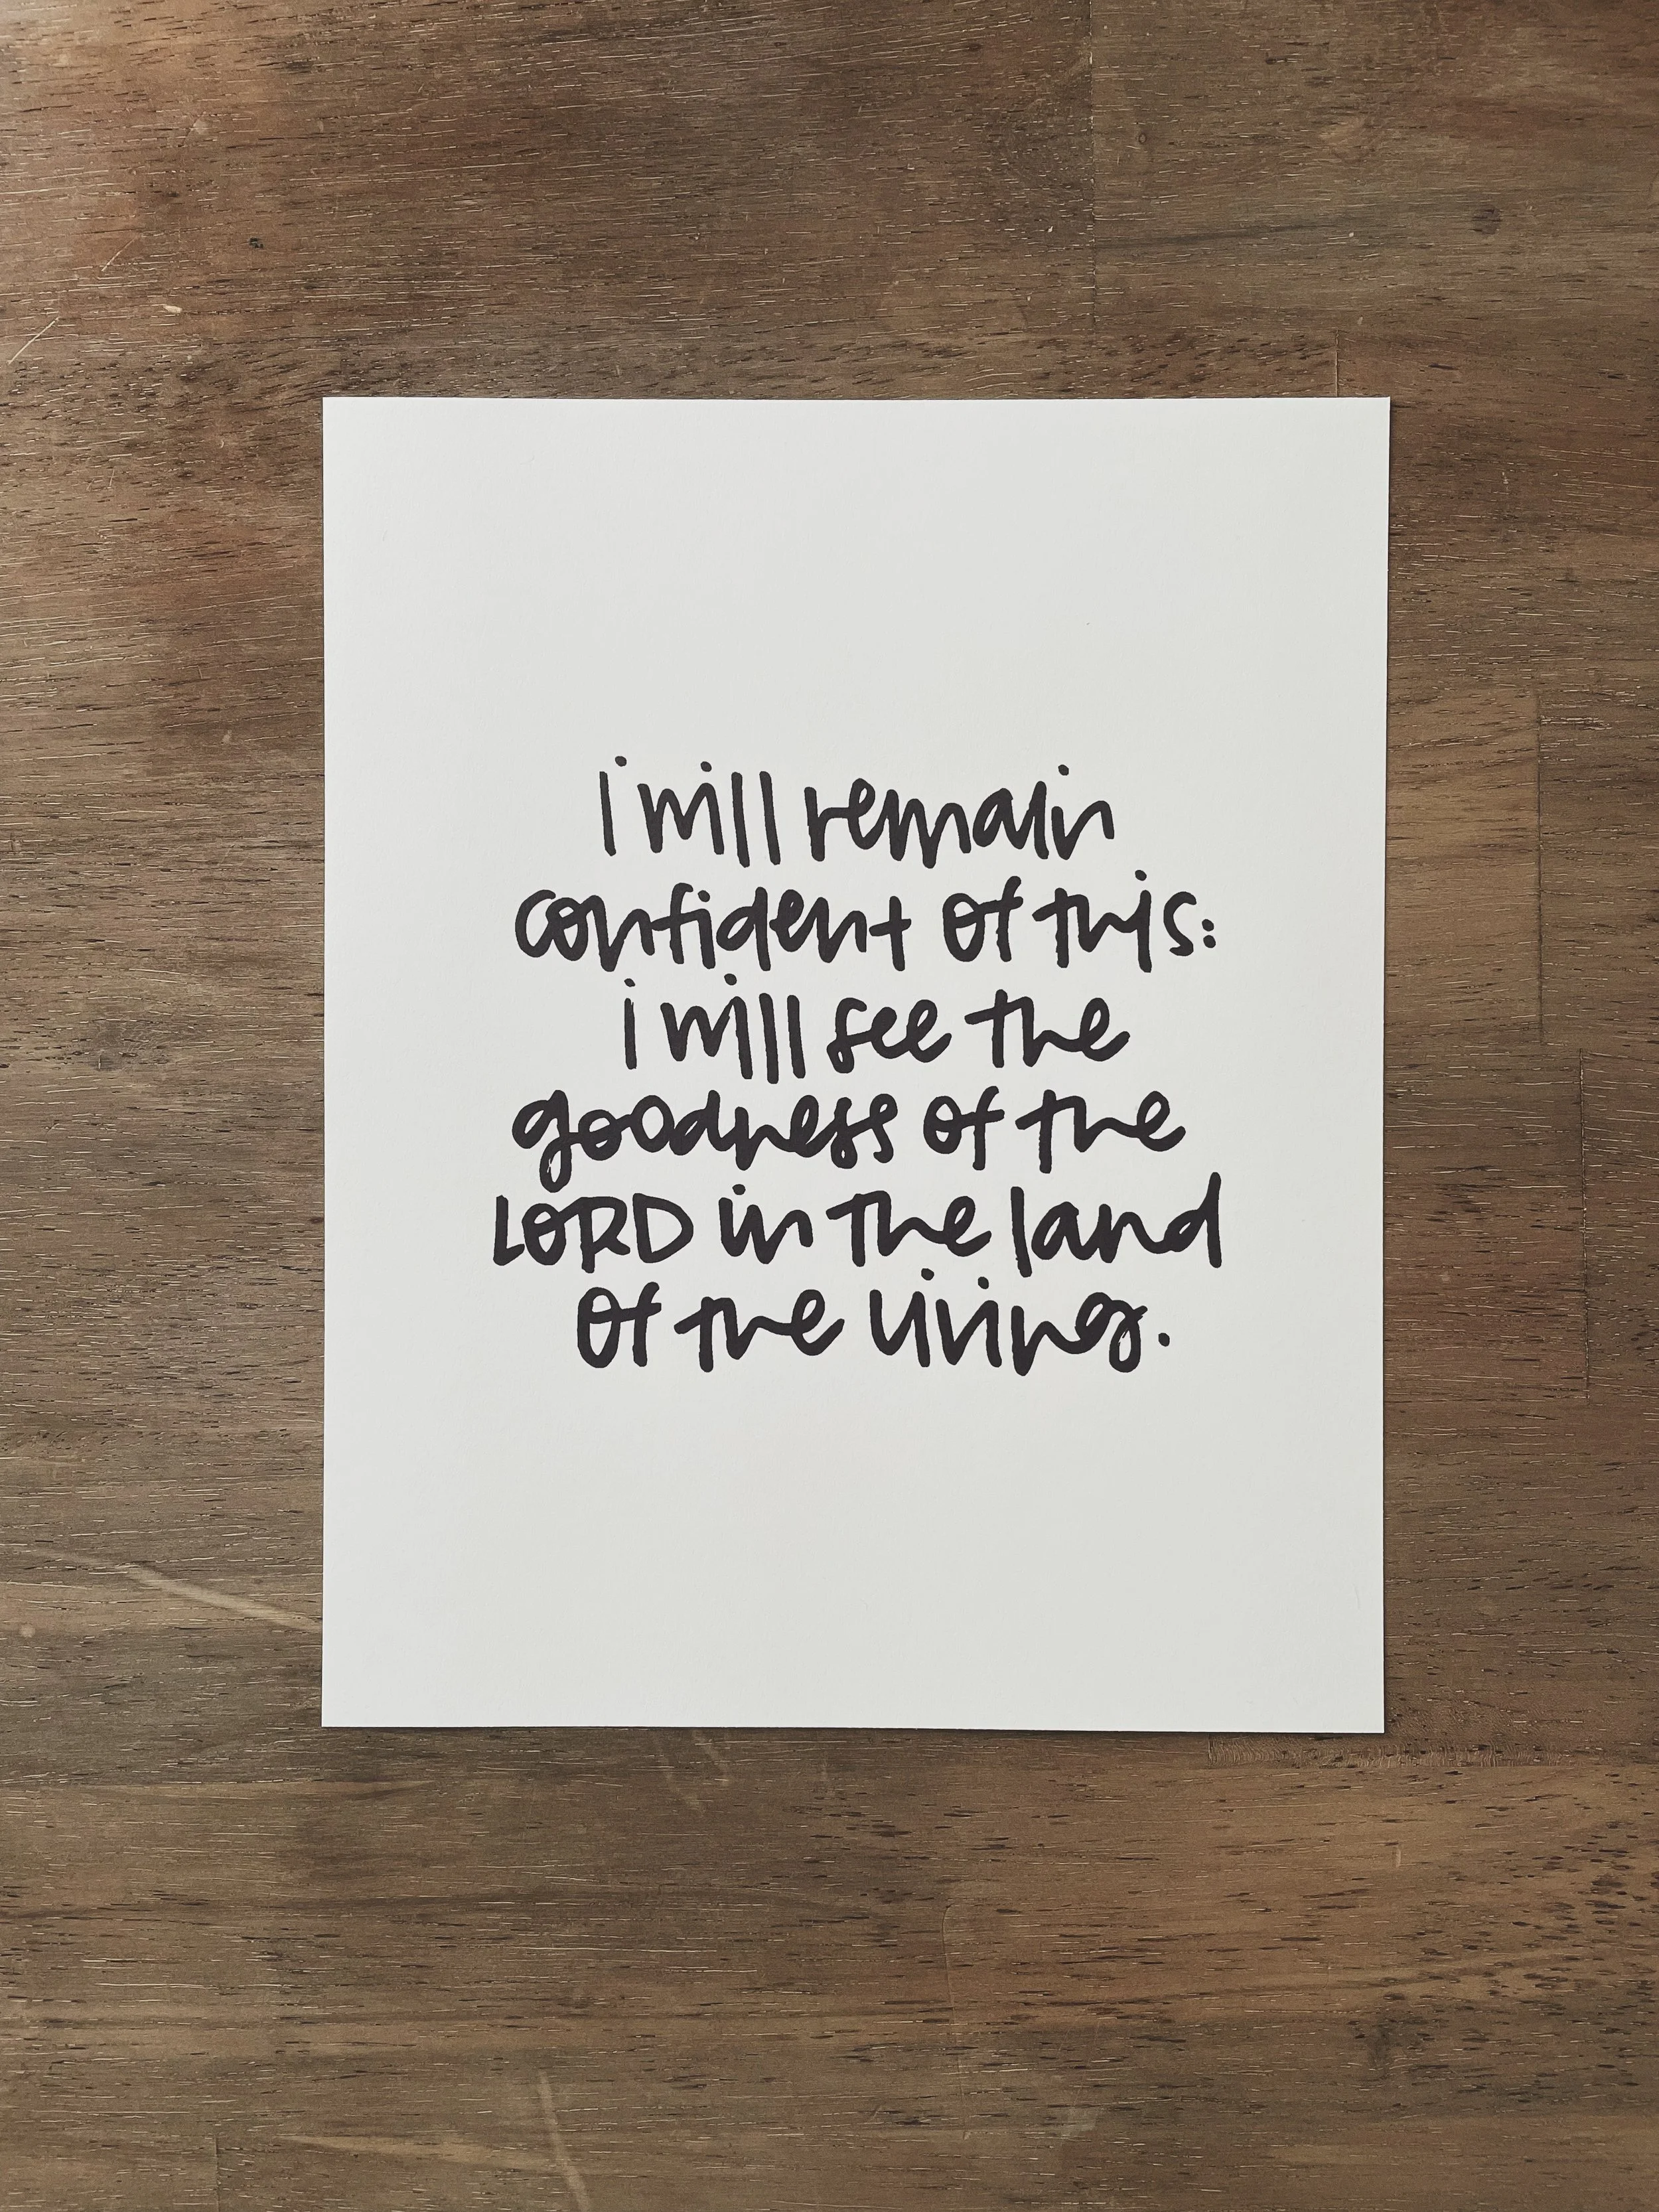 i will remain
confident of this:
i will see the
goodness of the
LORD in the land
of the living.